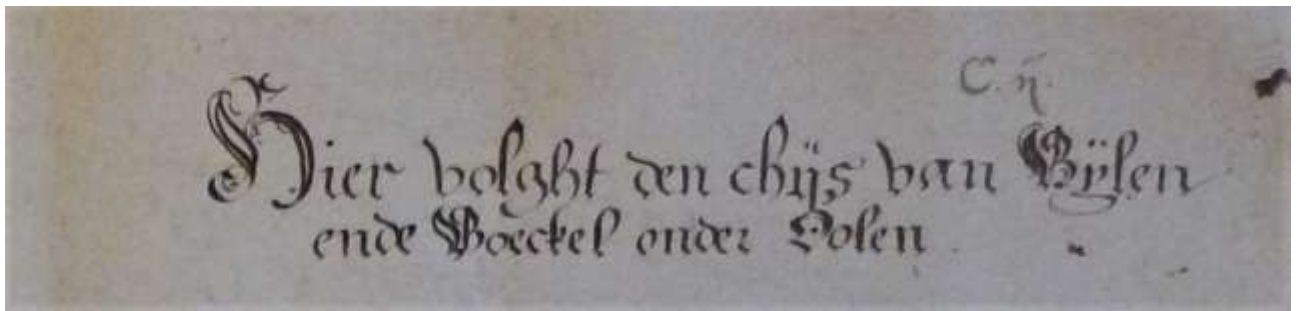 C. ij.
Hier volght den chijs van Bijlen
ende Boeckel onder Oolen